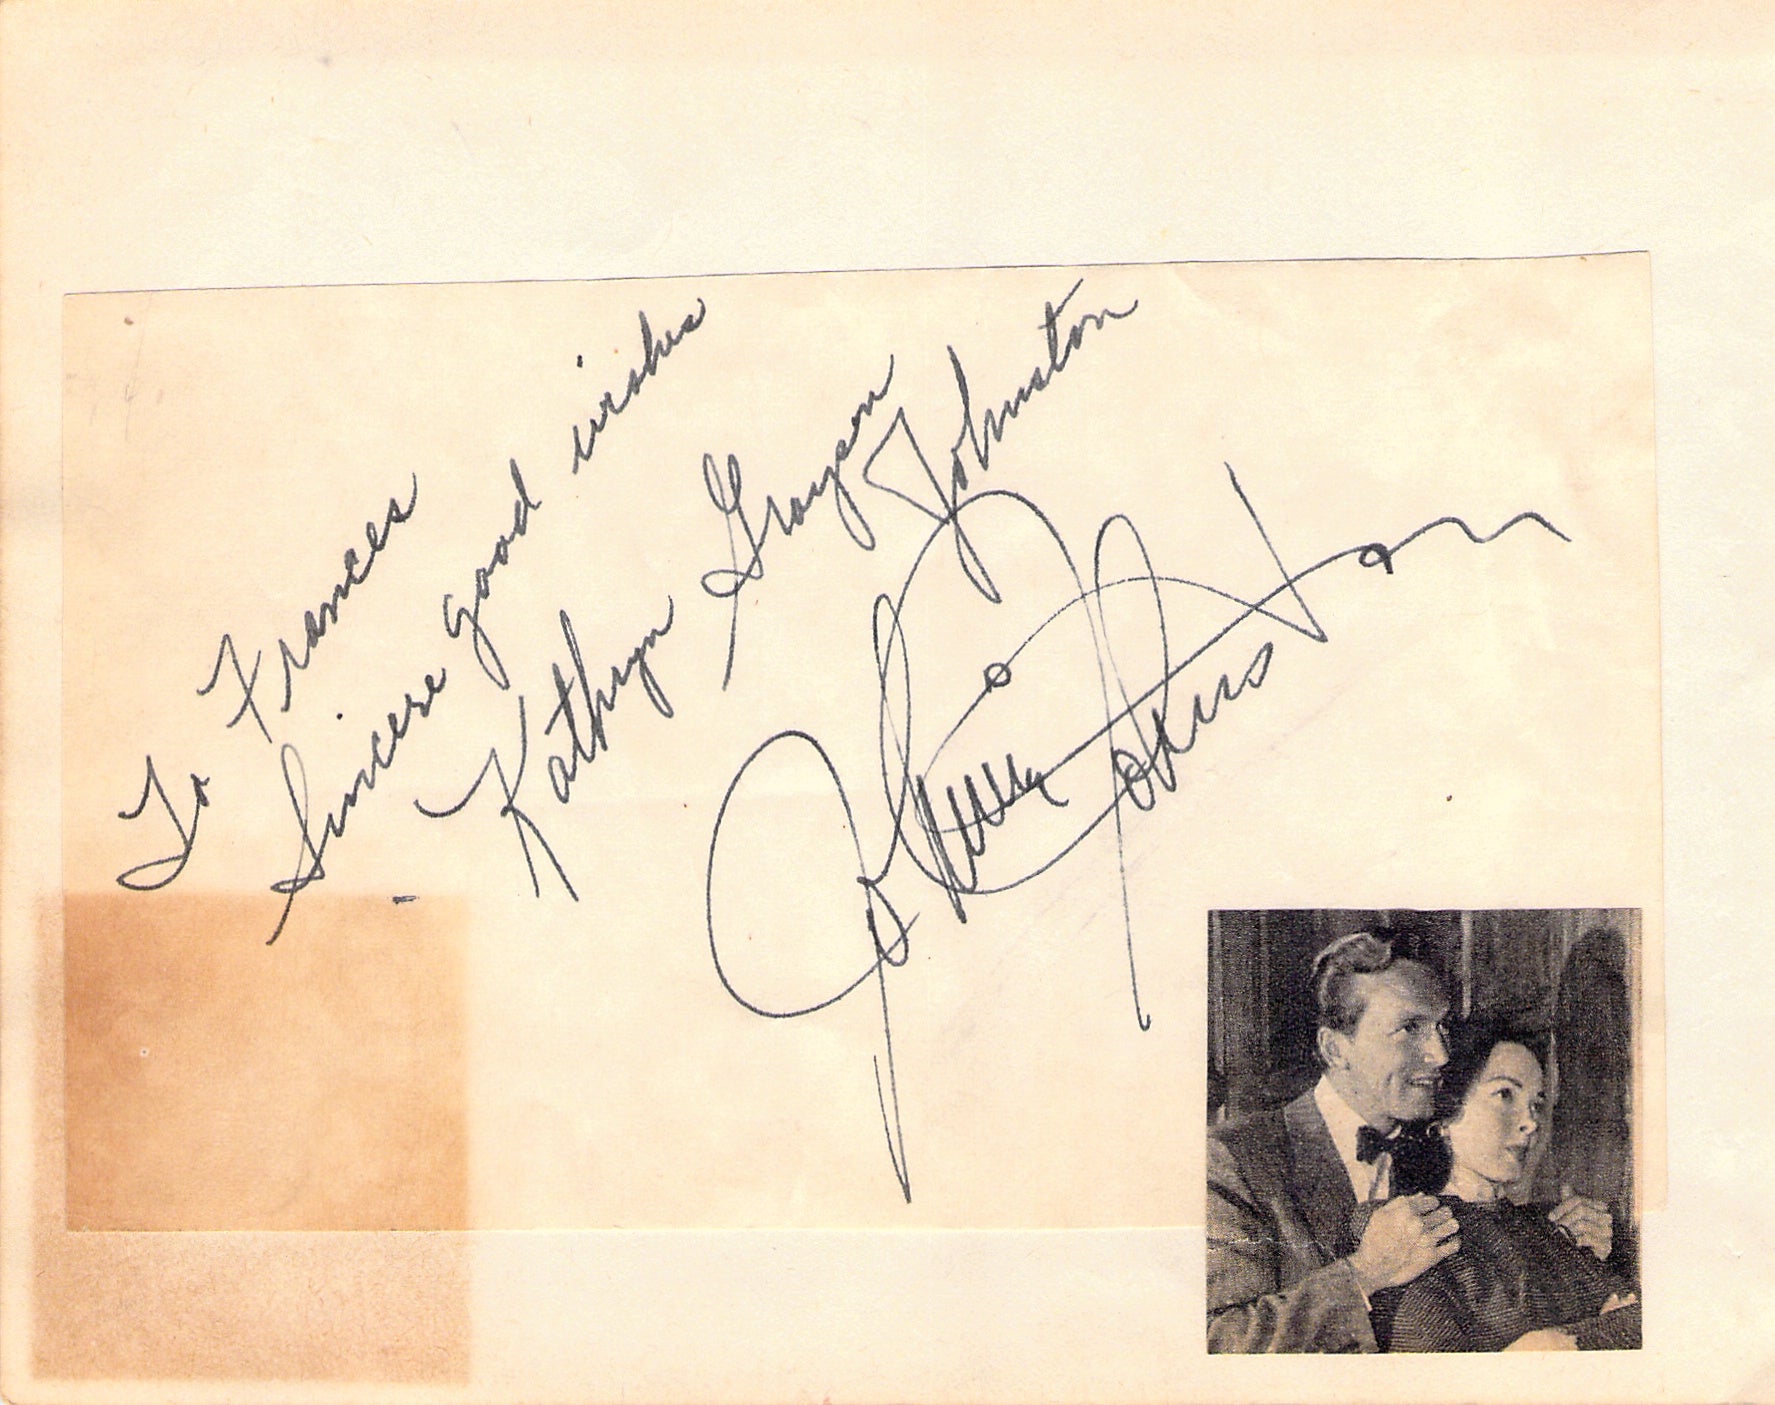 To Frances
Sincere good wishes
Kathryn Grayson Johnston
Johnnie Johnston